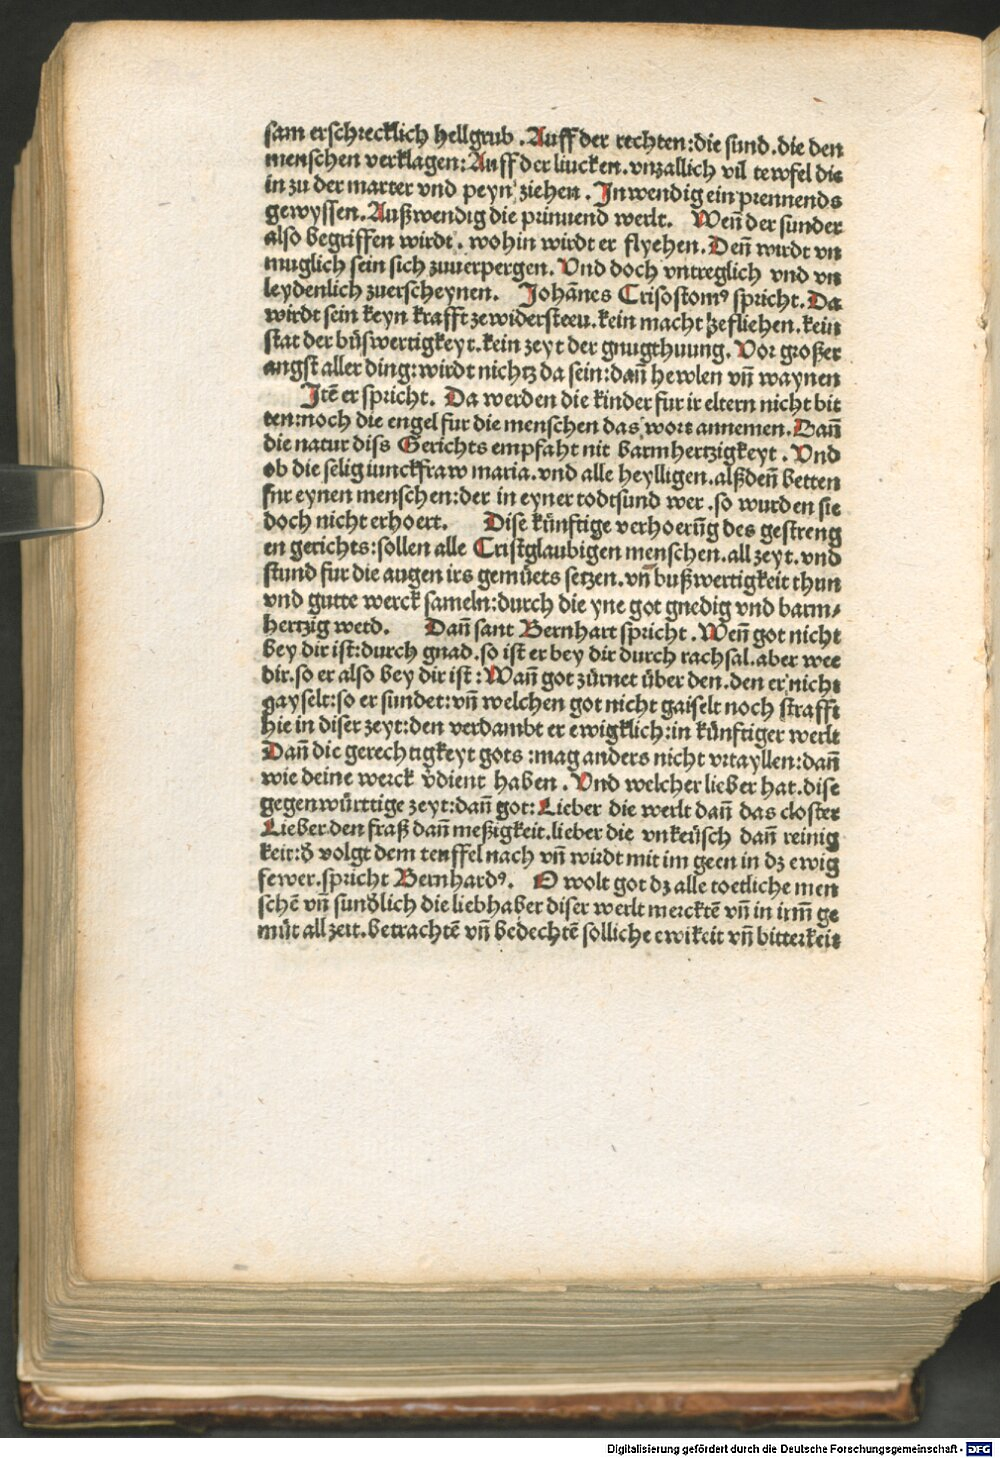 sam erschrecklich hellgrub . Auff der rechten: die sund. die den
menschen verklagen: Auff der liucken. vnzallich vil tewfel die
in zu der marter vnd peyn ziehen . Inwendig ein prennends
gewyssen. Außwendig die prinuend werlt. Weñ der sunder
also begriffen wirdt . wohin wirdt er flyehen. Deñ wirdt vn
muglich sein sich zuuerpergen. Vnd doch vntreglich vnd vn
leydenlich zuerscheynen. Johānes Crisostomꝰ spricht. Da
wirdt sein keyn krafft zewidersteeu. kein macht zefliehen. kein
stat der büswertigkeyt. kein zeyt der gnugthuung. Vor großer
angst aller ding: wirdt nichtz da sein: dañ hewlen vñ waynen
Itē er spricht. Da werden die kinder fur ir eltern nicht bit
ten: noch die engel fur die menschen das wort annemen. Dañ
die natur diss Gerichts empfaht nit barmhertzigkeyt . Vnd
ob die selig iunckfraw maria. vnd alle heylligen. alßdeñ betten
fur eynen menschen: der in eyner todtsund wer . so wurden sie
doch nicht erhoert. Dise künftige verhoerūg des gestreng
en gerichts: sollen alle Cristglaubigen menschen. all zeyt. vnd
stund fur die augen irs gemüets setzen. vñ bußwertigkeit thun
vnd gutte werck sameln: durch die yne got gnedig vnd barm⸗
hertzig werd. Dañ sant Bernhart spricht . Weñ got nicht
bey dir ist: durch gnad. so ist er bey dir durch rachsal. aber wee
dir. so er also bey dir ist : Wañ got zürnet über den. den er nicht
gayselt: so er sundet: vñ welchen got nicht gaiselt noch strafft
hie in diser zeyt: den verdambt er ewigklich: in künftiger werlt
Dañ die gerechtigkeyt gots : mag anders nicht vrtayllen: dañ
wie deine werck v̄dient haben . Vnd welcher lieber hat. dise
gegenwürttige zeyt: dañ got: Lieber die werlt dañ das closter
Lieber den fraß dañ meßigkeit. lieber die vnkeüsch dañ reinig
keit: đ volgt dem teuffel nach vñ wirdt mit im geen in dz ewig
fewer. spricht Bernhardꝰ. O wolt got dz alle toetliche men
schē vñ sunđlich die liebhaber diser werlt mercktē vñ in irm̄ ge
müt all zeit. betrachtē vñ bedechtē solliche ewikeit vñ bitterkeit
Digitalisierung gefördert durch die Deutsche Forschungsgemeinschaft - DFG